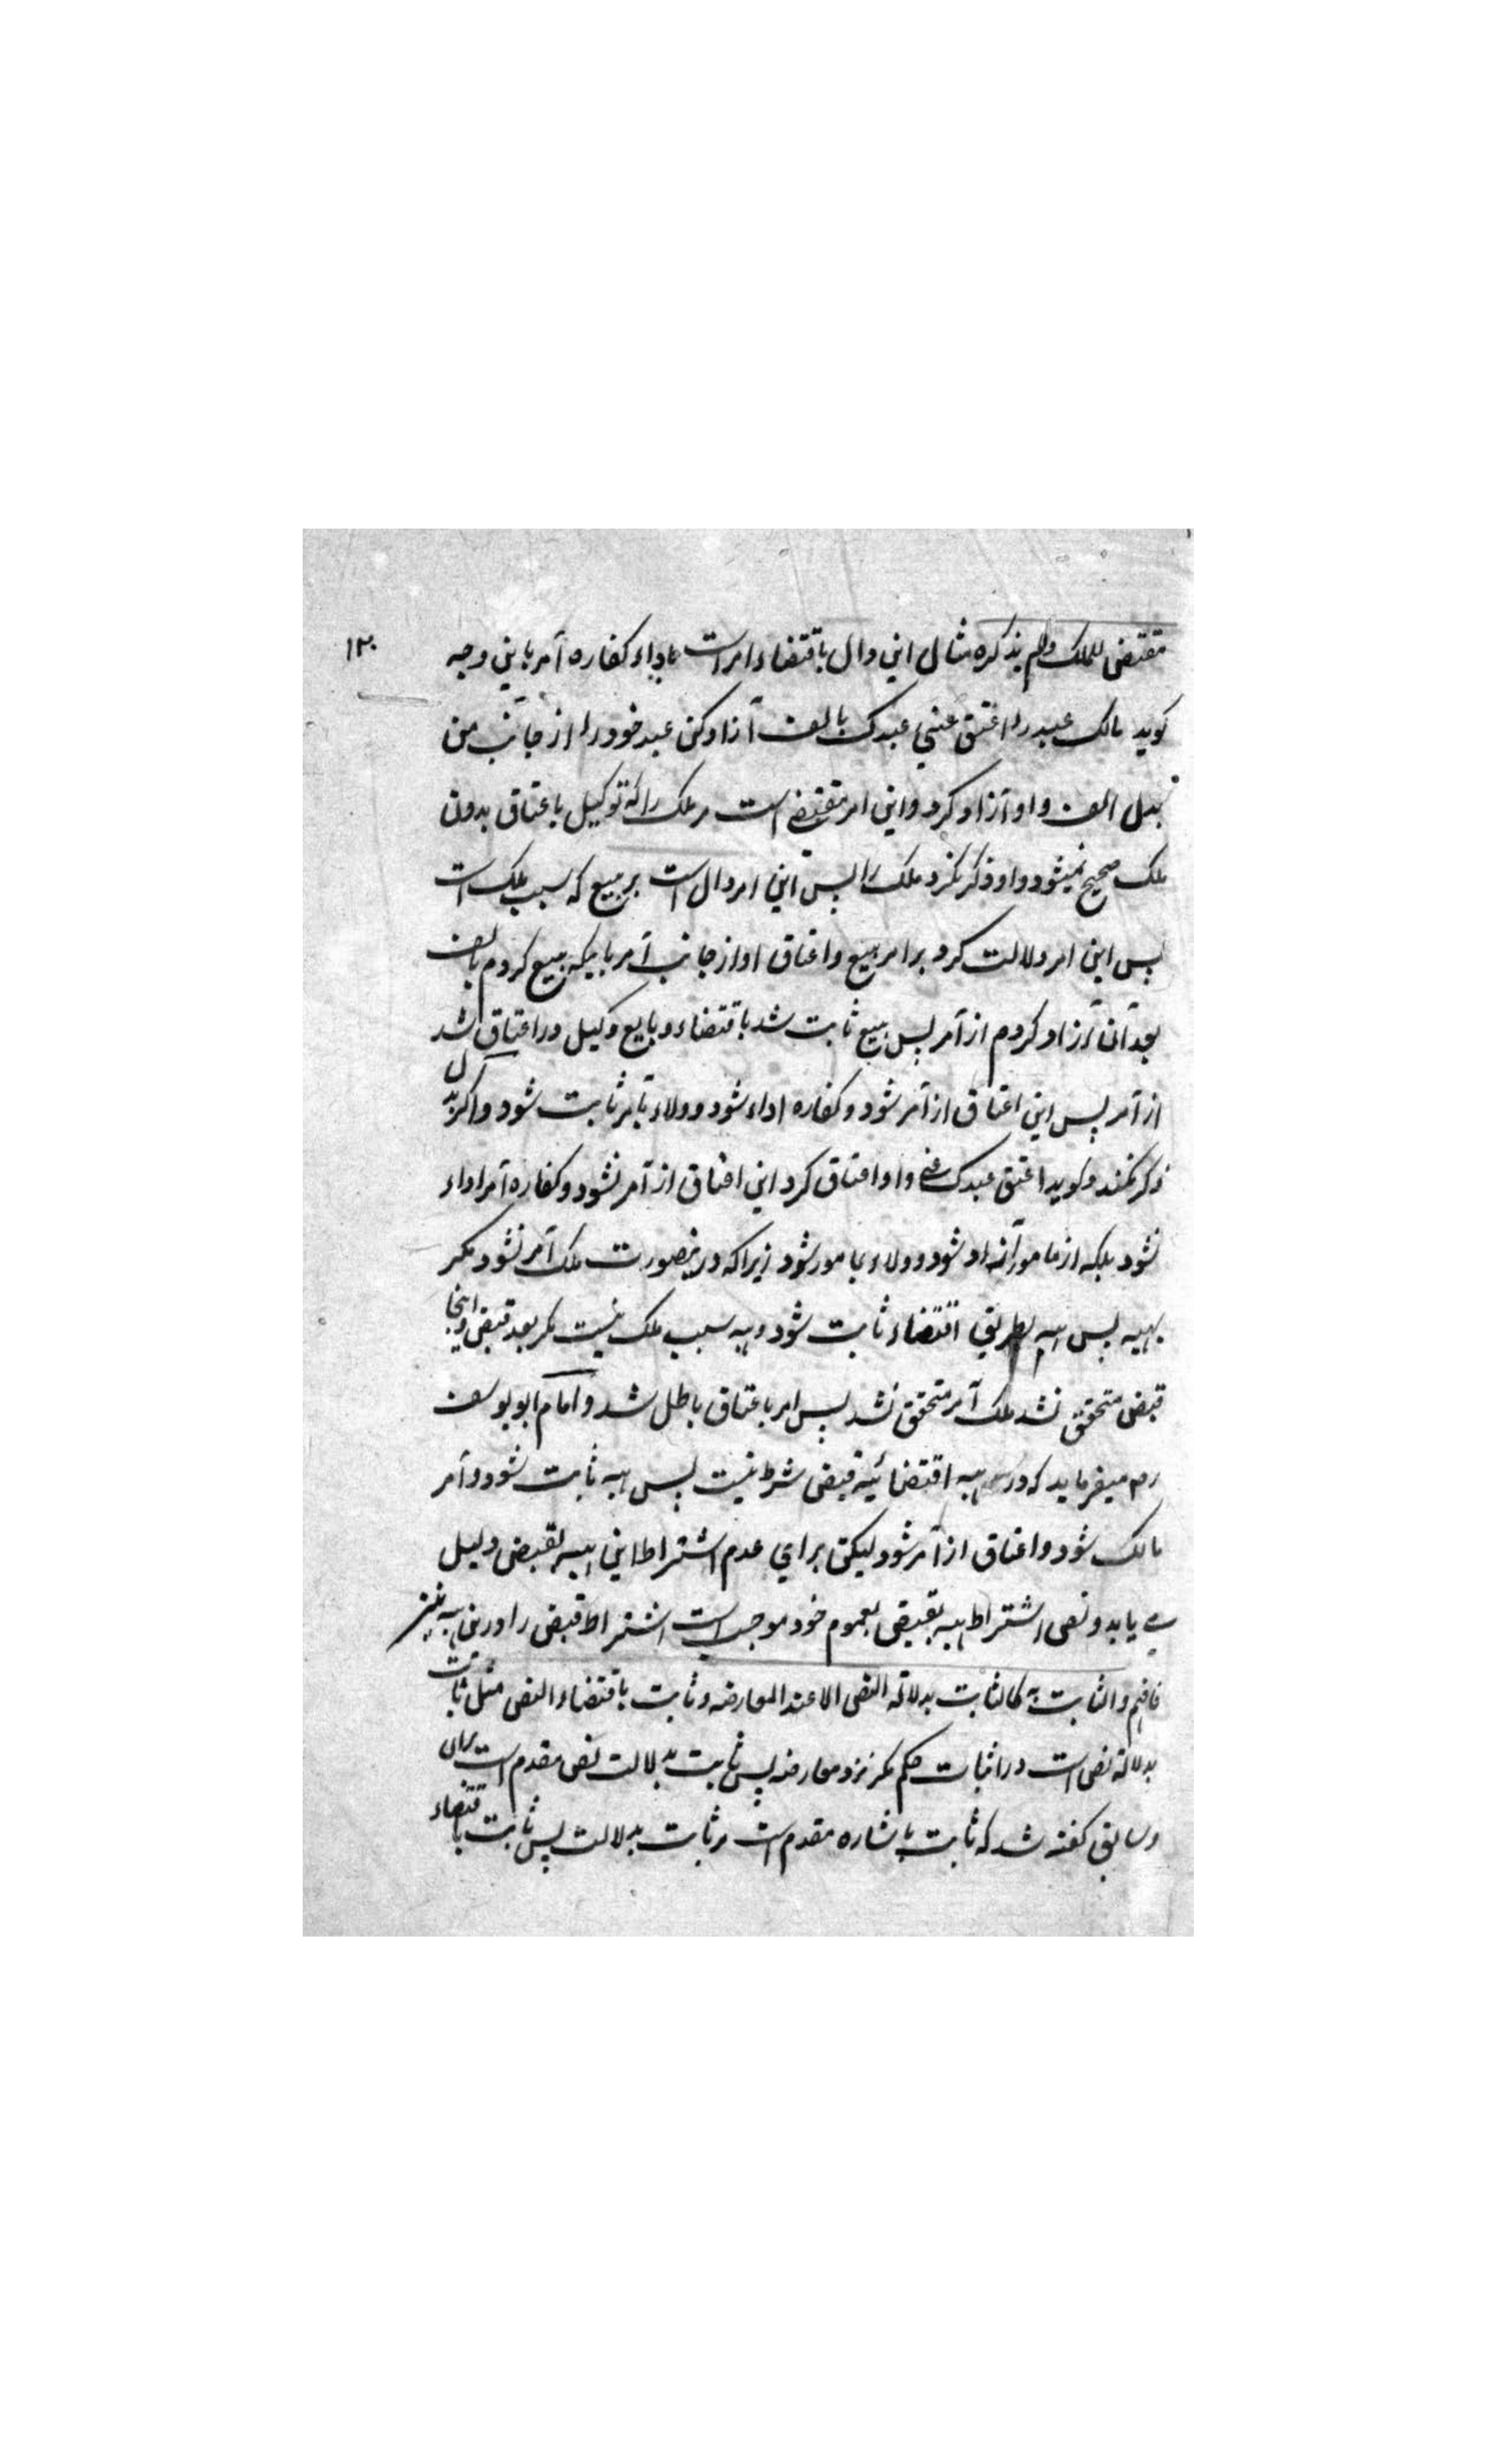 ۱۳۰
مقتضی للملک ولم یذکره مثال این دال باقتضاء امر است باداء کفاره آمر باین وجه
کوید مالک عبد را اعتق عنی عبدک بالف آزاد کن عبد خود را از جانب من
ببدل الف و او آزاد کرد و این امر مقتضی است مر ملک را که توکیل باعتاق بدون
ملک صحیح نمیشود و او ذکر نکرد ملک را پس این امر دال است بر بیع که سبب ملک است
پس این امر دلالت کرد بر امر بیع و اعتاق او از جانب آمر باینکه بیع کردم بالف
بعد آن آزاد کردم از آمر پس بیع ثابت شد باقتضاء و بایع وکیل در اعتاق شد
از آمر پس این اعتاق از آمر شود و کفاره اداء شود و ولاء بآمر ثابت شود و اکر بدل
ذکر نکند و کوید اعتق عبدک عنی و او اعتاق کرد این اعتاق از آمر نشود و کفاره آمر اداء
نشود بلکه از مامور آزاد شود و ولاء بمامور شود زیرا که درینصورت ملک آمر نشود مکر
بهبه پس هبه بطریق اقتضاء ثابت شود و هبه سبب ملک نیست مکر بعد قبض و اینجا
قبض متحقق نشد ملک آمر متحقق نشد پس امر باعتاق باطل شد و امام ابو یوسف
رح میفرماید که در هبه اقتضائیه قبض شرط نیست پس هبه ثابت شود و آمر
مالک شود و اعتاق از آمر شود لیکن برای عدم اشتراط این هبه بقبض دلیل
می یابد و نص اشتراط هبه بقبض بعموم خود موجب است اشتراط قبض را درین هبه نیز
فافهم والثابت به کالثابت بدلالة النص الا عند المعارضه و ثابت باقتضاء النص مثل ثابت
بدلالة نص است در اثبات حکم مکر نزد معارضه پس ثابت بدلالت نص مقدم است بران
و سابق کفته شد که ثابت باشاره مقدم است بر ثابت بدلالت پس ثابت باقتضاء